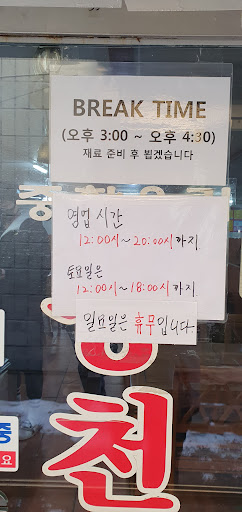 BREAK TIME
(오후 3:00 ~ 오후 4:30)
재료 준비 후 뵙겠습니다
영업 시간
12:00시~20:00시까지
토요일은
12:00시~18:00시까지
일요일은 휴무입니다
천
중
요